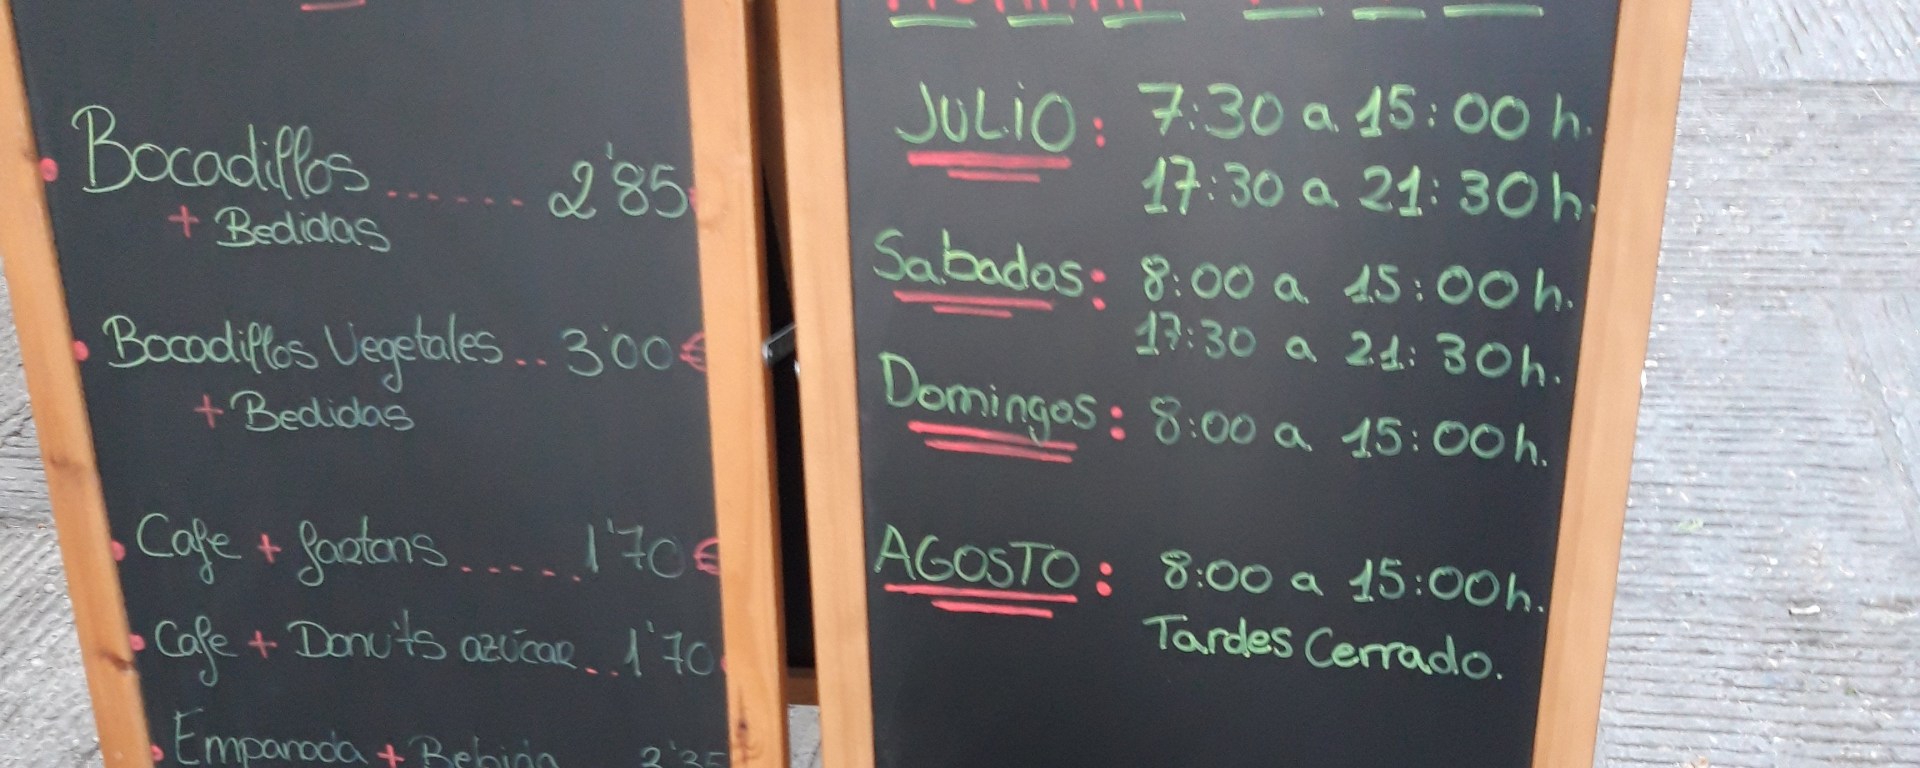 Bocadillos ...... 2'85
+ Bedidas
Bocadillos Vegetales .. 3'00 €
+ Bedidas
Cafe + fartons ...... 1'70 €
Cafe + Donuts azúcar .. 1'70
Empanada + Bebida
JULIO: 7:30 a 15:00 h.
17:30 a 21:30 h.
Sabados: 8:00 a 15:00 h.
17:30 a 21:30 h.
Domingos: 8:00 a 15:00 h.
AGOSTO: 8:00 a 15:00 h.
Tardes Cerrado.